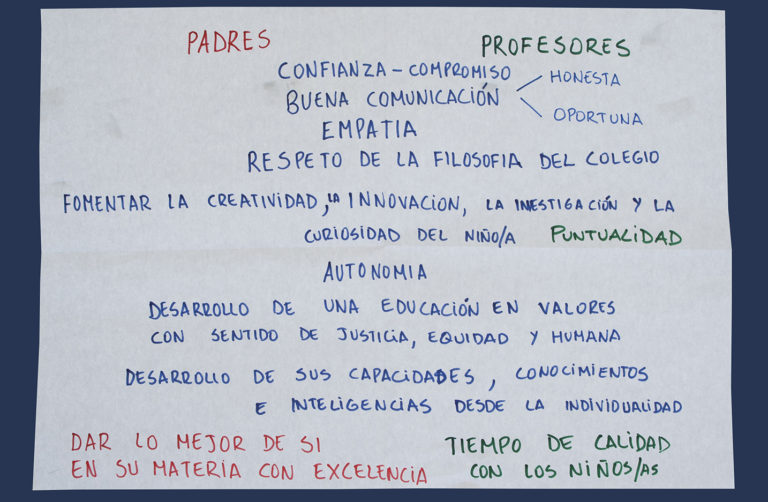 PADRES PROFESORES
CONFIANZA - COMPROMISO
HONESTA
BUENA COMUNICACIÓN
OPORTUNA
EMPATIA
RESPETO DE LA FILOSOFIA DEL COLEGIO
FOMENTAR LA CREATIVIDAD, LA INNOVACION, LA INESTIGACIÓN Y LA
CURIOSIDAD DEL NIÑO/A PUNTUALIDAD
AUTONOMIA
DESARROLLO DE UNA EDUCACIÓN EN VALORES
CON SENTIDO DE JUSTICIA, EQUIDAD Y HUMANA
DESARROLLO DE SUS CAPACIDADES, CONOCIMIENTOS
E INTELIGENCIAS DESDE LA INDIVIDUALIDAD
DAR LO MEJOR DE SI
EN SU MATERIA CON EXCELENCIA
TIEMPO DE CALIDAD
CON LOS NIÑOS/AS